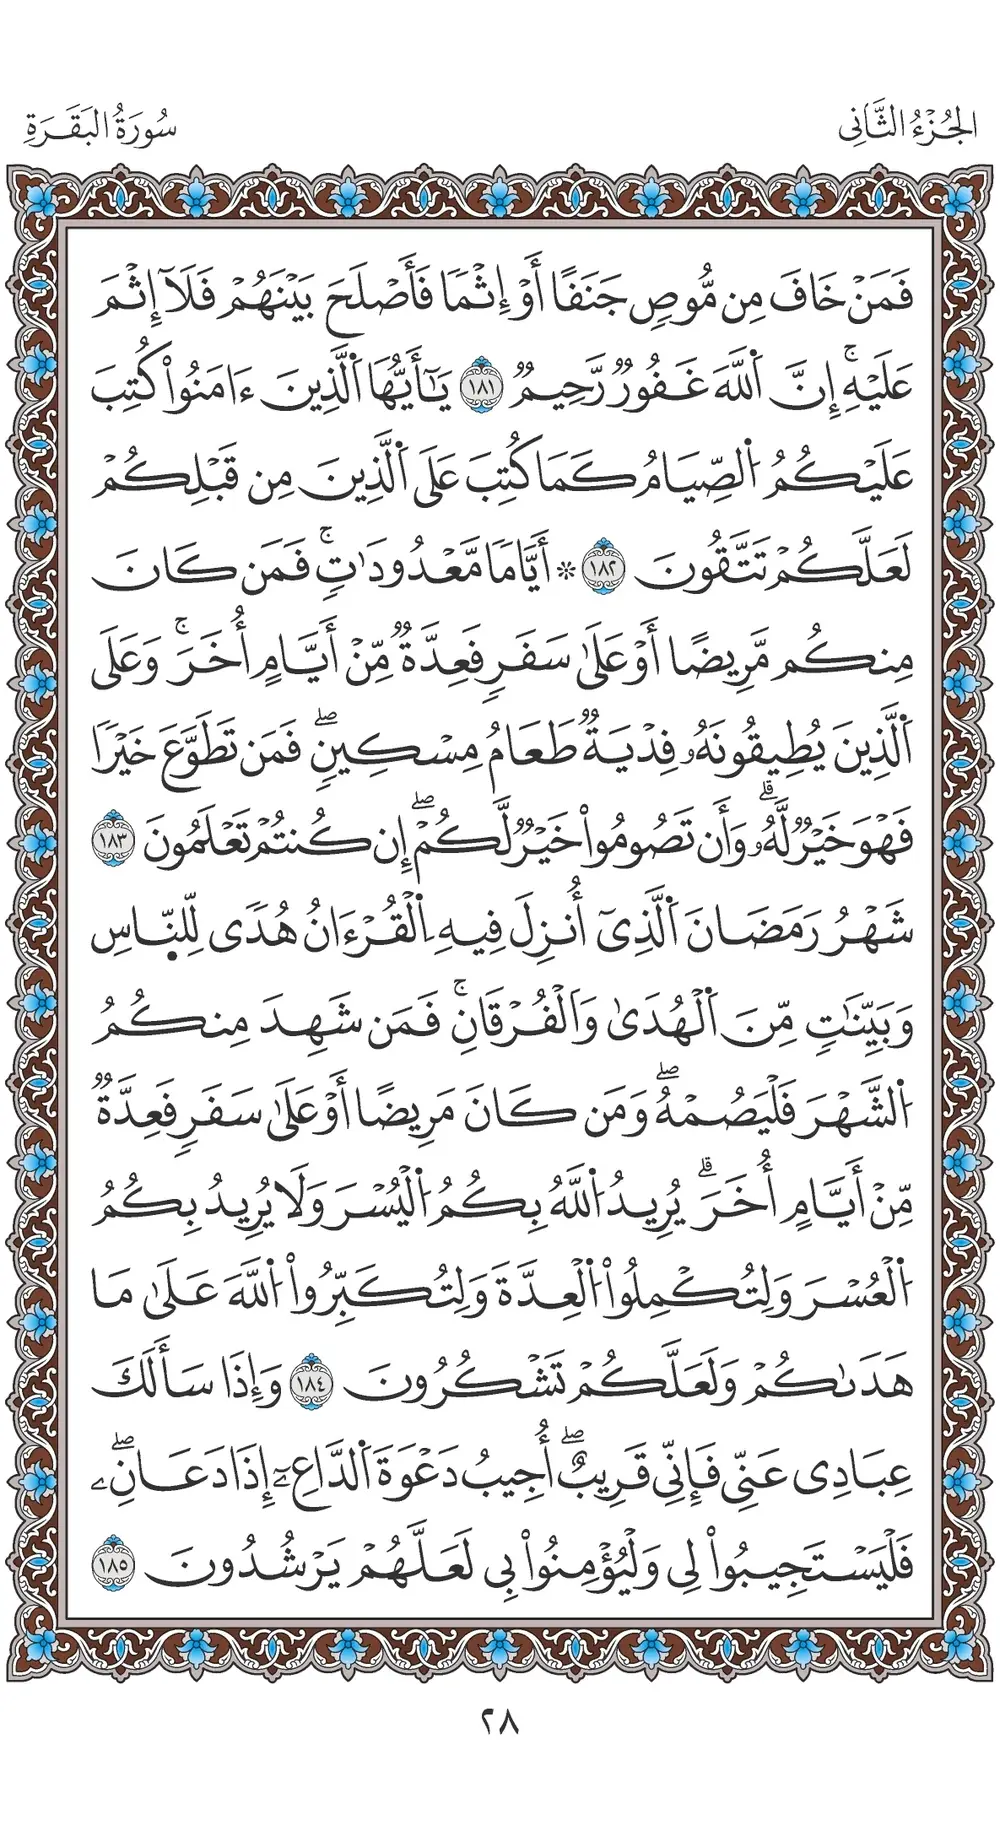 الجُزْءُ الثَّانِي
سُورَةُ البَقَرَةِ
فَمَنْ خَافَ مِن مُّوصٍ جَنَفًا أَوْ إِثْمًا فَأَصْلَحَ بَيْنَهُمْ فَلَآ إِثْمَ
عَلَيْهِۚ إِنَّ ٱللَّهَ غَفُورٌ رَّحِيمٌ ١٨١ يَـٰٓأَيُّهَا ٱلَّذِينَ ءَامَنُوا۟ كُتِبَ
عَلَيْكُمُ ٱلصِّيَامُ كَمَا كُتِبَ عَلَى ٱلَّذِينَ مِن قَبْلِكُمْ
لَعَلَّكُمْ تَتَّقُونَ ١٨٢ ۞ أَيَّامًا مَّعْدُودَٰتٍۚ فَمَن كَانَ
مِنكُم مَّرِيضًا أَوْ عَلَىٰ سَفَرٍ فَعِدَّةٌ مِّنْ أَيَّامٍ أُخَرَۚ وَعَلَى
ٱلَّذِينَ يُطِيقُونَهُۥ فِدْيَةٌ طَعَامُ مِسْكِينٍۖ فَمَن تَطَوَّعَ خَيْرًا
فَهْوَ خَيْرٌ لَّهُۥۗ وَأَن تَصُومُوا۟ خَيْرٌ لَّكُمْۖ إِن كُنتُمْ تَعْلَمُونَ ١٨٣
شَهْرُ رَمَضَانَ ٱلَّذِىٓ أُنزِلَ فِيهِ ٱلْقُرْءَانُ هُدًى لِّلنَّاسِ
وَبَيِّنَـٰتٍ مِّنَ ٱلْهُدَىٰ وَٱلْفُرْقَانِۚ فَمَن شَهِدَ مِنكُمُ
ٱلشَّهْرَ فَلْيَصُمْهُۖ وَمَن كَانَ مَرِيضًا أَوْ عَلَىٰ سَفَرٍ فَعِدَّةٌ
مِّنْ أَيَّامٍ أُخَرَۗ يُرِيدُ ٱللَّهُ بِكُمُ ٱلْيُسْرَ وَلَا يُرِيدُ بِكُمُ
ٱلْعُسْرَ وَلِتُكْمِلُوا۟ ٱلْعِدَّةَ وَلِتُكَبِّرُوا۟ ٱللَّهَ عَلَىٰ مَا
هَدَىٰكُمْ وَلَعَلَّكُمْ تَشْكُرُونَ ١٨٤ وَإِذَا سَأَلَكَ
عِبَادِى عَنِّى فَإِنِّى قَرِيبٌۖ أُجِيبُ دَعْوَةَ ٱلدَّاعِۦٓ إِذَا دَعَانِۦۖ
فَلْيَسْتَجِيبُوا۟ لِى وَلْيُؤْمِنُوا۟ بِى لَعَلَّهُمْ يَرْشُدُونَ ١٨٥
٢٨